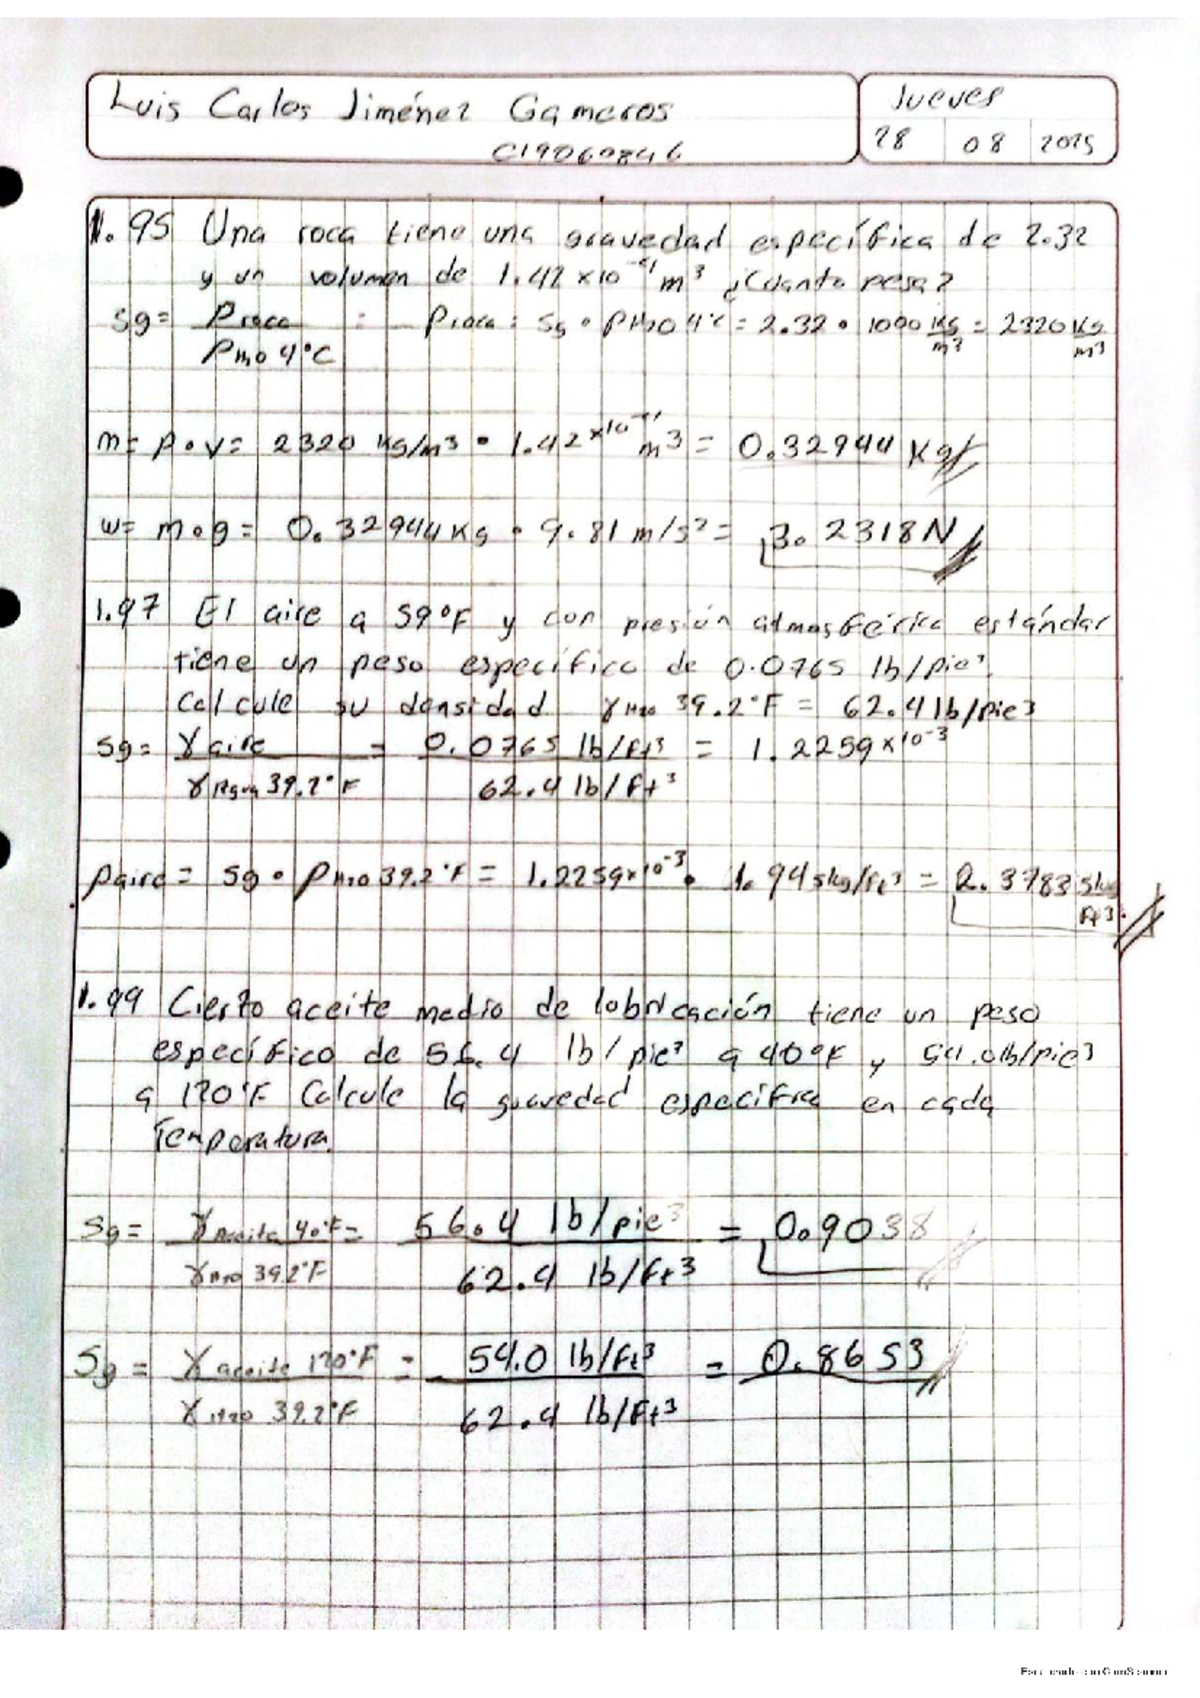 Luis Carlos Jiménez Gameros
C19060846
Jueves
28 08 2025
1.95 Una roca tiene una gravedad específica de 2.32
y un volumen de 1.42 x10⁻⁴ m³ ¿Cuanto pesa?
Sg = ρroca / ρH2O 4°C : ρroca : Sg • ρH2O 4°C = 2.32 • 1000 Kg/m³ = 2320 Kg/m³
m = ρ • v = 2320 Kg/m³ • 1.42 x10⁻⁴ m³ = 0.32944 Kg
w = m • g = 0.32944 Kg • 9.81 m/s² = 3.2318 N
1.97 El aire a 59°F y con presión atmosférica estándar
tiene un peso especifico de 0.0765 lb/pie³.
Calcule su densidad γH2O 39.2°F = 62.4 lb/pie³
Sg = γ aire / γ Agua 39.2°F = 0.0765 lb/ft³ / 62.4 lb/ft³ = 1.2259 x10⁻³
ρaire = Sg • ρH2O 39.2°F = 1.2259 x10⁻³ • 1.94 slg/ft³ = 2.3783 slug/ft³
1.99 Cierto aceite medio de lubricación tiene un peso
específico de 56.4 lb/pie³ a 40°F y 54.0 lb/pie³
a 120°F Calcule la gravedad específica en cada
Temperatura.
Sg = γ Aceite 40°F / γH2O 39.2°F = 56.4 lb/pie³ / 62.4 lb/ft³ = 0.9038
Sg = γ aceite 120°F / γ H2O 39.2°F = 54.0 lb/ft³ / 62.4 lb/ft³ = 0.8653